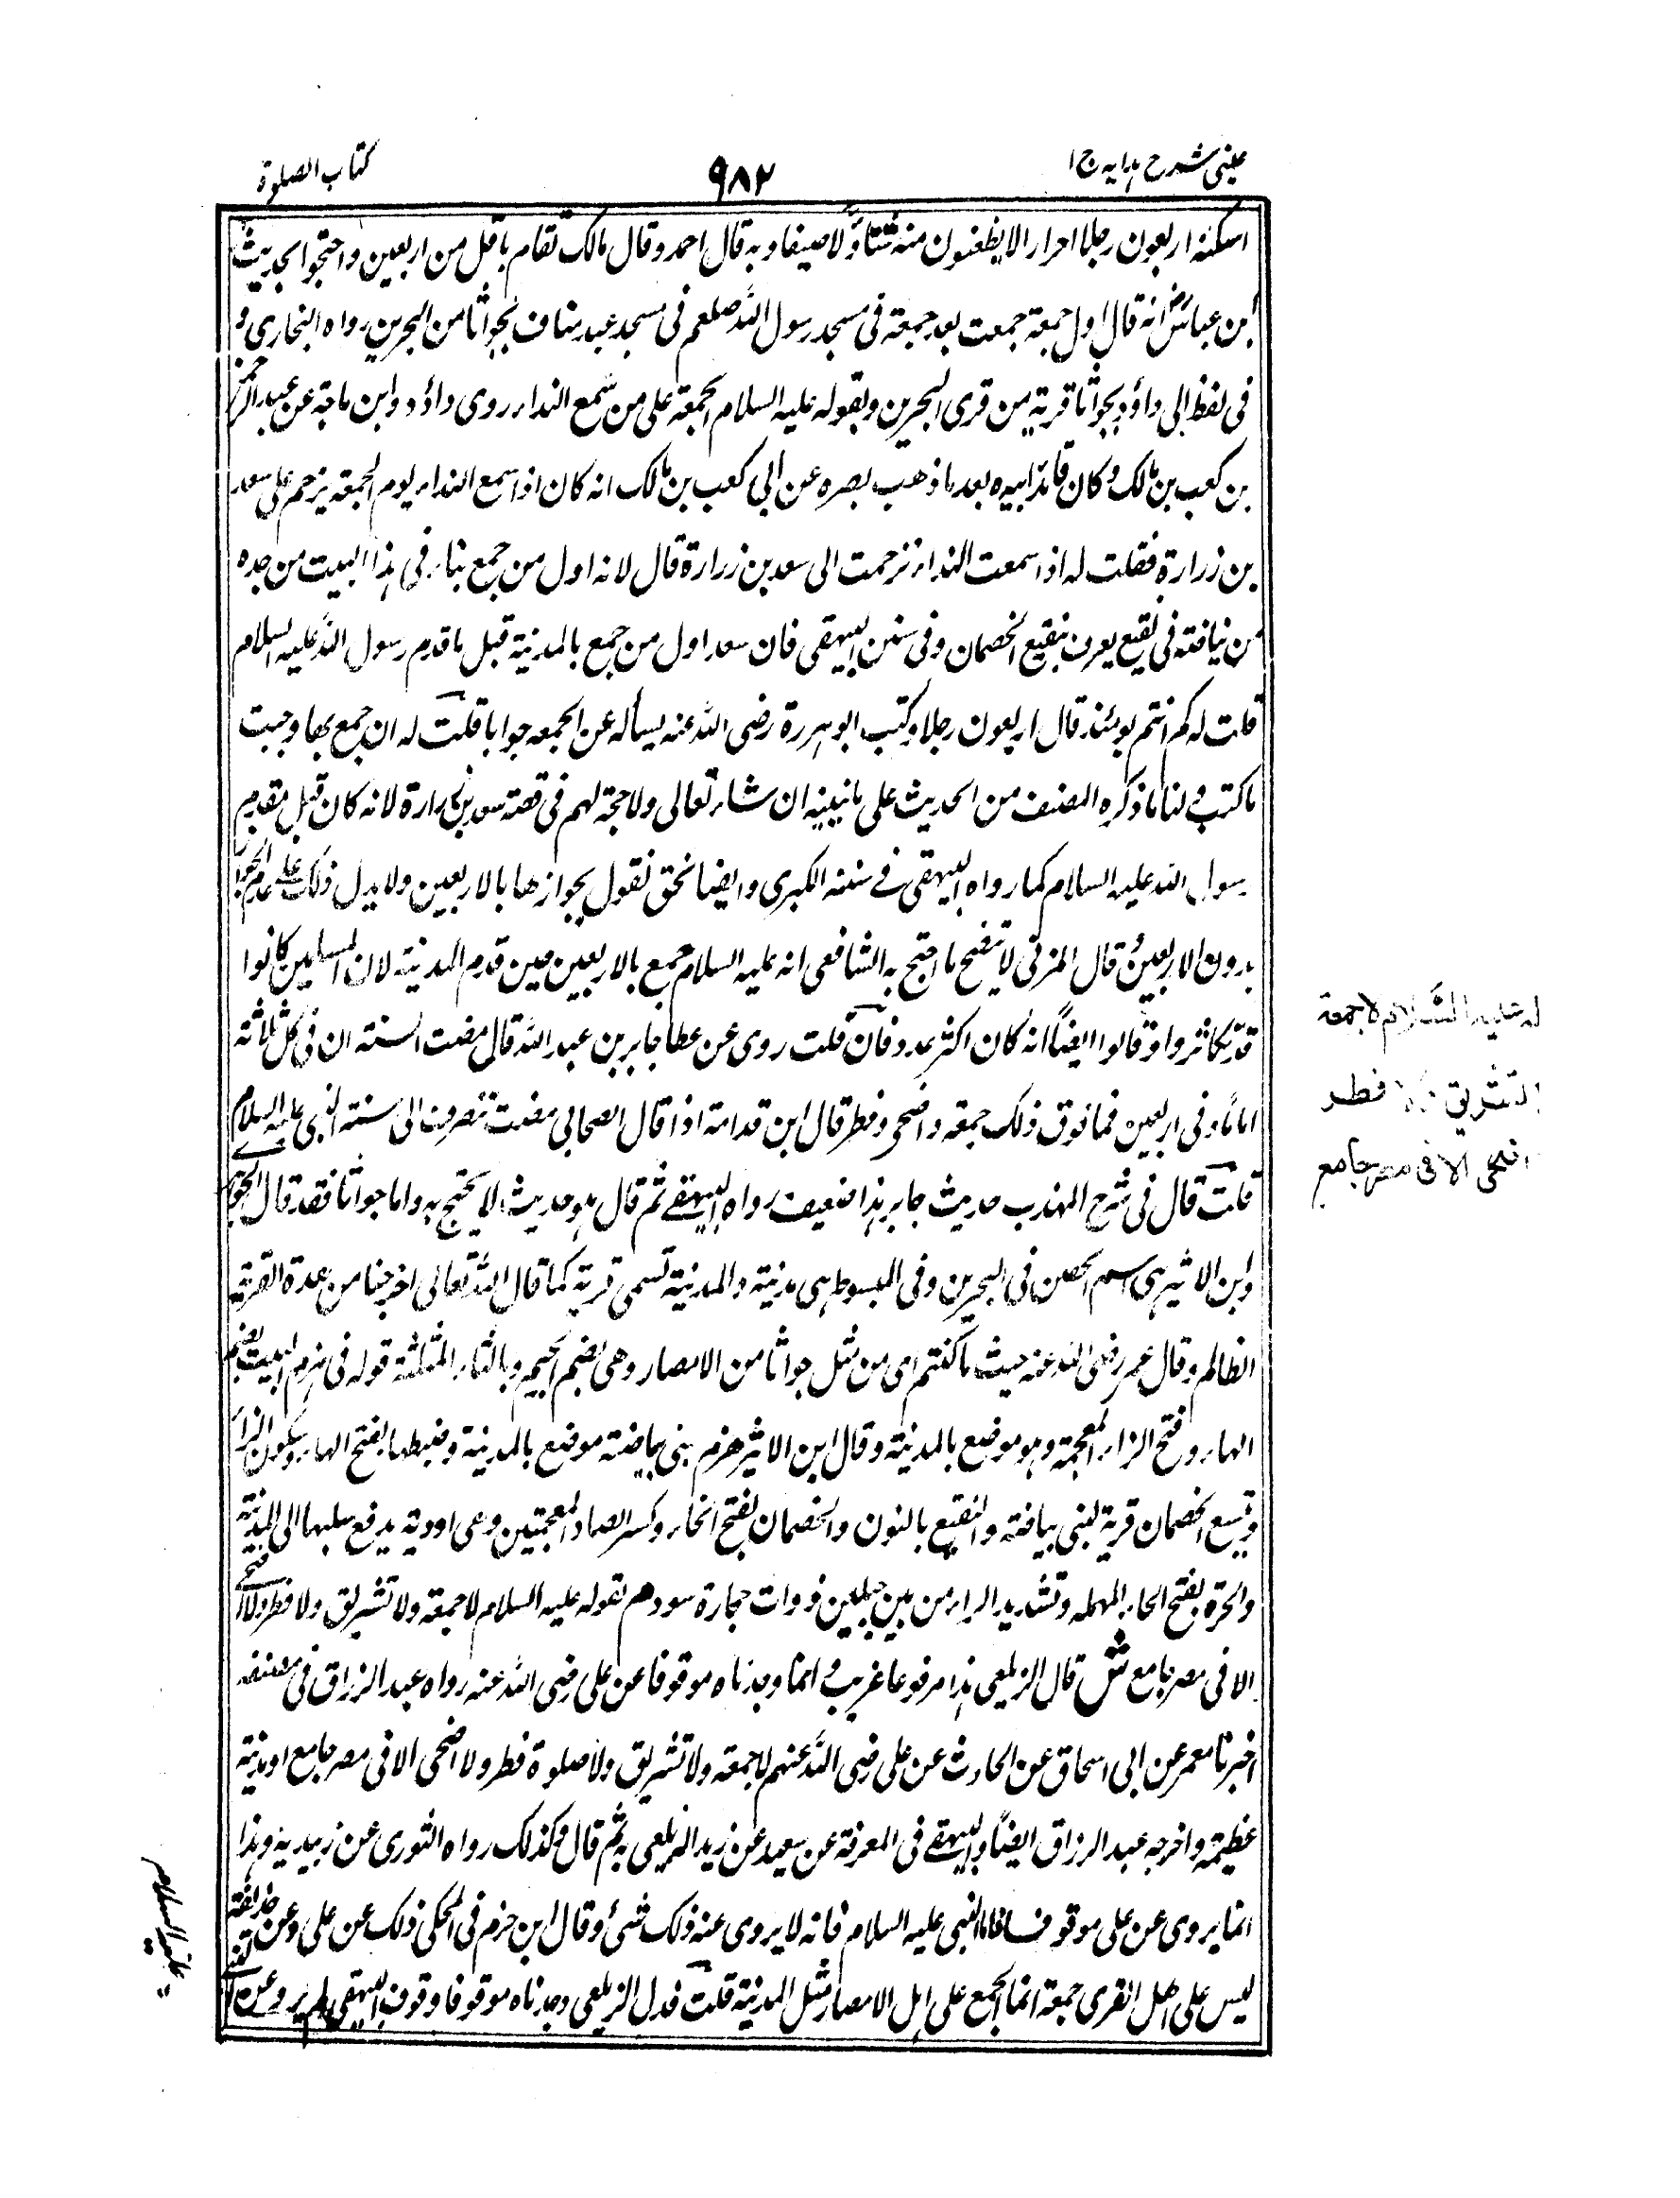 عینی شرح ہدایہ ج ا
٩٨٢
کتاب الصلوة
اسکنہ اربعون رجلا احرار الا یظعنون منہ شتاءً ولا صیفا وبہ قال احمد وقال مالک تقام باقل من اربعین واحتجوا بحدیث
ابن عباس رض انہ قال اول جمعة جمعت بعد جمعة فی مسجد رسول اللہ صلعم فی مسجد عبد مناف بجواثا من البحرین رواہ البخاری و
فی لفظ ابی داؤد بجواثا قریة من قری البحرین وبقولہ علیہ السلام الجمعة علی من سمع النداء روی داؤد وابن ماجة عن عبد الرحمن
بن کعب بن مالک وکان قائد ابیہ بعد ما ذھب بصرہ عن ابی کعب بن مالک انہ کان اذا سمع النداء یوم الجمعة یرحم علی سعد
بن زرارة فقلت لہ اذا سمعت النداء ترحمت الی سعد بن زرارة قال لانہ اول من جمع بناء فی ہذا البیت من حدہ
من نیافتہ فی نقیع یعرف بنقیع الخضمان وفی سنن البیہقی فان سعد اول من جمع بالمدینة قبل ما قدم رسول اللہ علیہ السلام
قلت لہ کم انتم یومئذ قال اربعون رجلا وکتب ابو ہریرة رضی اللہ عنہ یسألہ عن الجمعة جوابا قلت لہ ان جمع بھا وجبت
ما کتب ولنا ما ذکرہ المصنف من الحدیث علی ما نبینہ ان شاء تعالی ولا حجة لہم فی قصة سعد بن زرارة لانہ کان قبل مقدم
رسول اللہ علیہ السلام کما رواہ البیہقی فے سننہ الکبری وایضا نحق نقول بجوازھا بالاربعین ولا یدل ذلک علی عدم الجواز
بدون الاربعین قال المزنی لا یتضح ما احتج بہ الشافعی انہ علیہ السلام جمع بالاربعین حین قدم المدینة لان المسلمین کانوا
قد تکاثروا وقالوا ایضاً انہ کان اکثر عدد فان قلت روی عن عطا جابر بن عبد اللہ قال مضت السنة ان فی کل ثلاثة
اماماً وفی اربعین فما فوق ذلک جمعة واضحی وفطر قال ابن قدامة اذا قال الصحابی مضت تنصرف الی سنة النبی علیہ السلام
قلت قال فی شرح المہذب حدیث جابر ہذا ضعیف رواہ البیہقے ثم قال ہو حدیث لا یحتج بہ واما جواثا فقد قال الجوہری
وابن الاثیر ہی اسم الحصن فی البحرین وفی المبسوط ہی مدینة والمدینة تسمی قریة کما قال اللہ تعالی اخرجنا من ہذہ القریة
الظالم وقال عمر رضی اللہ عنہ حیث ما کنتم ای من مثل جواثا من الامصار وھی بضم الجیم وبالثاء المثلثة قولہ فی ہزم البیت بضم
الہاء وفتح الزاء المعجمة وہو موضع بالمدینة وقال ابن الاثیر ھزم بنی بیاضة موضع بالمدینة وضبطہا بفتح الہاء وسکون الزاء
ونقیع الخضمان قریة لبنی بیاضة والنقیع بالنون والخضمان بفتح الخاء وکسر الضاد المعجمتین وھی اودیة یدفع سلیہا الی المدینة
والحرة بفتح الحاء المہملہ وتشدید الراء من بین جبلین ذوات حجارة سود ھم لقولہ علیہ السلام لا جمعة ولا تشریق ولا فطر ولا اضحی
الا فی مصر جامع ش قال الزیلعی ہذا مرفوعا غریب وانما وجدناہ موقوفا عن علی رضی اللہ عنہ رواہ عبد الرزاق فی مصنفہ
اخبرنا معمر عن ابی اسحاق عن الحارث عن علی رضی اللہ عنہم لا جمعة ولا تشریق ولا صلوة فطر ولا اضحی الا فی مصر جامع او مدینة
عظیمة واخرجہ عبد الرزاق ایضاً والبیہقے فی المعرفة عن سعید عن زید الزیلعی بہ ثم قال وکذلک رواہ الثوری عن زبید بہ وہذا
انما یروی عن علی موقوفا فاما النبی علیہ السلام فانہ لا یروی عنہ ذلک شیء وقال ابن حزم فی المحلی ذلک عن علی وعن حذیفة
لیس علی اھل القری جمعة انما الجمع علی اہل الامصار مثل المدینة قلت فدل الزیلعی وجدناہ موقوفا وقوف البیہقی لم یرو عن
لہ علیہ السَّلام لا جمعة
التشریق ولا فطر
اضحی الا فی مصر جامع
علیہ السلام